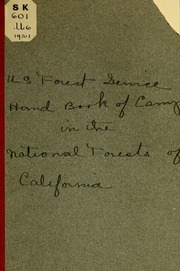 SK
601
.U6
1921
U S Forest Service
Hand Book of Camp
in the
National Forests of
California